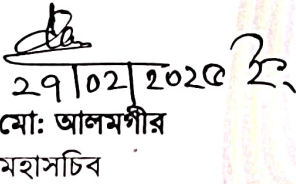 ২৭|০২|২০২৫ ইং
মো: আলমগীর
মহাসচিব